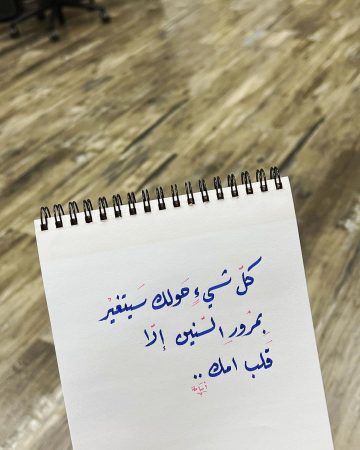 كلّ شيءٍ حَولك سَيتغيْر
بمرْورِ السّنين إلّا
قَلب امك ..